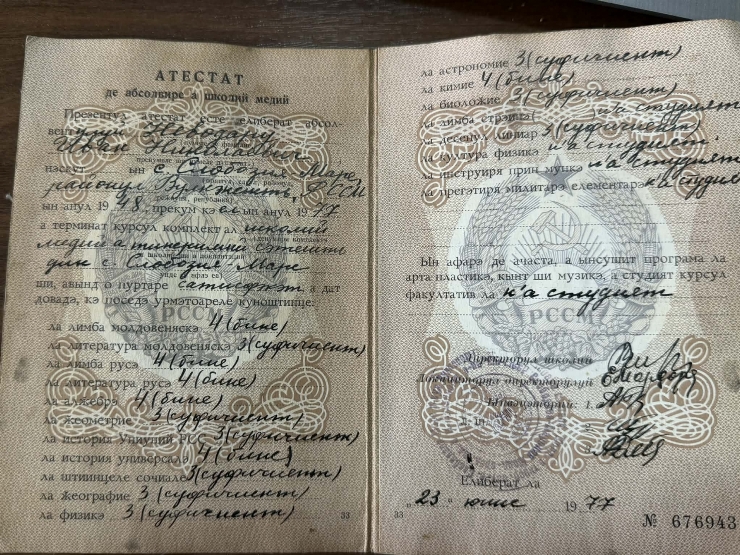 АТЕСТАТ
де абсолвире а школий медий
Презентул атестат есте елиберат абсол-
Иван Николаевич
нэскут ын с. Слобозия-Маре
районул Вулкэнешть, РССМ
ын анул 1948, прекум кэ ел ын анул 1977
а терминат курсул комплект ал школий
медий а тинеримий сэтешть
дин с. Слобозия-Маре
ши, авынд о пуртаре сатисфэк а дат
довадэ, кэ поседэ урмэтоареле куноштинце:
ла лимба молдовеняскэ 4 (бине)
ла литература молдовеняскэ 3 (суфичиент)
ла лимба русэ 4 (бине)
ла литература русэ 4 (бине)
ла алжебрэ 4 (бине)
ла жеометрие 3 (суфичиент)
ла история Униуний РСС 3 (суфичиент)
ла история универсалэ 4 (бине)
ла штиинцеле сочиале 3 (суфичиент)
ла жеографие 3 (суфичиент)
ла физикэ 3 (суфичиент)
33
РССМ
ла астрономие 3 (суфичиент)
ла кимие 4 (бине)
ла биоложие 3 (суфичиент)
ла лимба стрэинэ н'а студият
ла десенул линиар 3 (суфичиент)
ла култура физикэ н'а студият
ла инструиря прин мункэ н'а студият
ла прегэтиря милитарэ елементарэ н'а студият
Ын афарэ де ачаста, а ынсушит програма ла
арта пластикэ, кынт ши музикэ, а студият курсул
факултатив ла н'а студият
РССМ
Директорул школий
Локцииторул директорулуй
Ынвэцэторий: 1.
Елиберат ла
„23" юние 1977
33
№ 676943